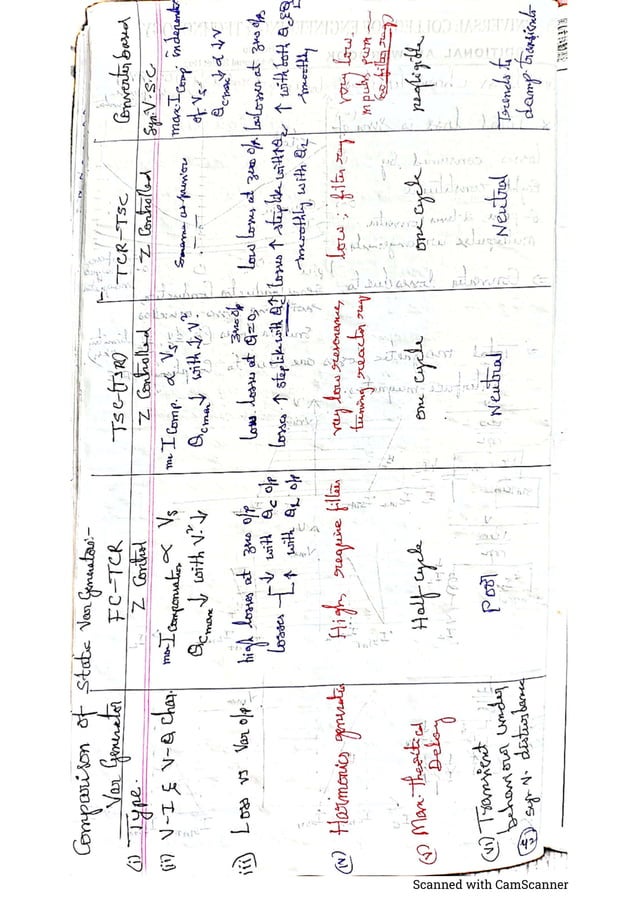 Comparison of Static Var Generators:-
Var Generator
FC-TCR
TSC-(TSR)
TCR-TSC
Converter based
(i) Type.
Z Control
Z Controlled
Z Controlled
Syn. V.S.C
(ii) V-I & V-Q Char.
max I Compensation ∝ Vs
Qcmax ↓ with V² ↓
max I Comp. ∝ Vs
Qcmax ↓ with ↓ V².
Same as previous
max. I Comp. independent
of Vs
Qcmax ↓ ∝ ↓ V
iii) Loss vs Var o/p.
high losses at zero o/p
losses ↓ with Qc o/p
↑ with QL o/p
low losses at Q=0; zero o/p
losses ↑ step like with Qc↑
low losses at zero o/p
losses ↑ step like with ↑ Qc
smoothly with QL
low losses at zero o/p
↑ with both Qc & QL
smoothly
(iv) Harmonics generation
High, require filter
very low resonance,
tuning reactor req
low; filter req
very low.
no filter req
(v) Max-theoretical
Delay
Half Cycle
one cycle
one cycle
negligible
(vi) Transient
behaviour under
sys. V. disturbance
Poor
Neutral
Neutral
Tends to
damp transients
Scanned with CamScanner